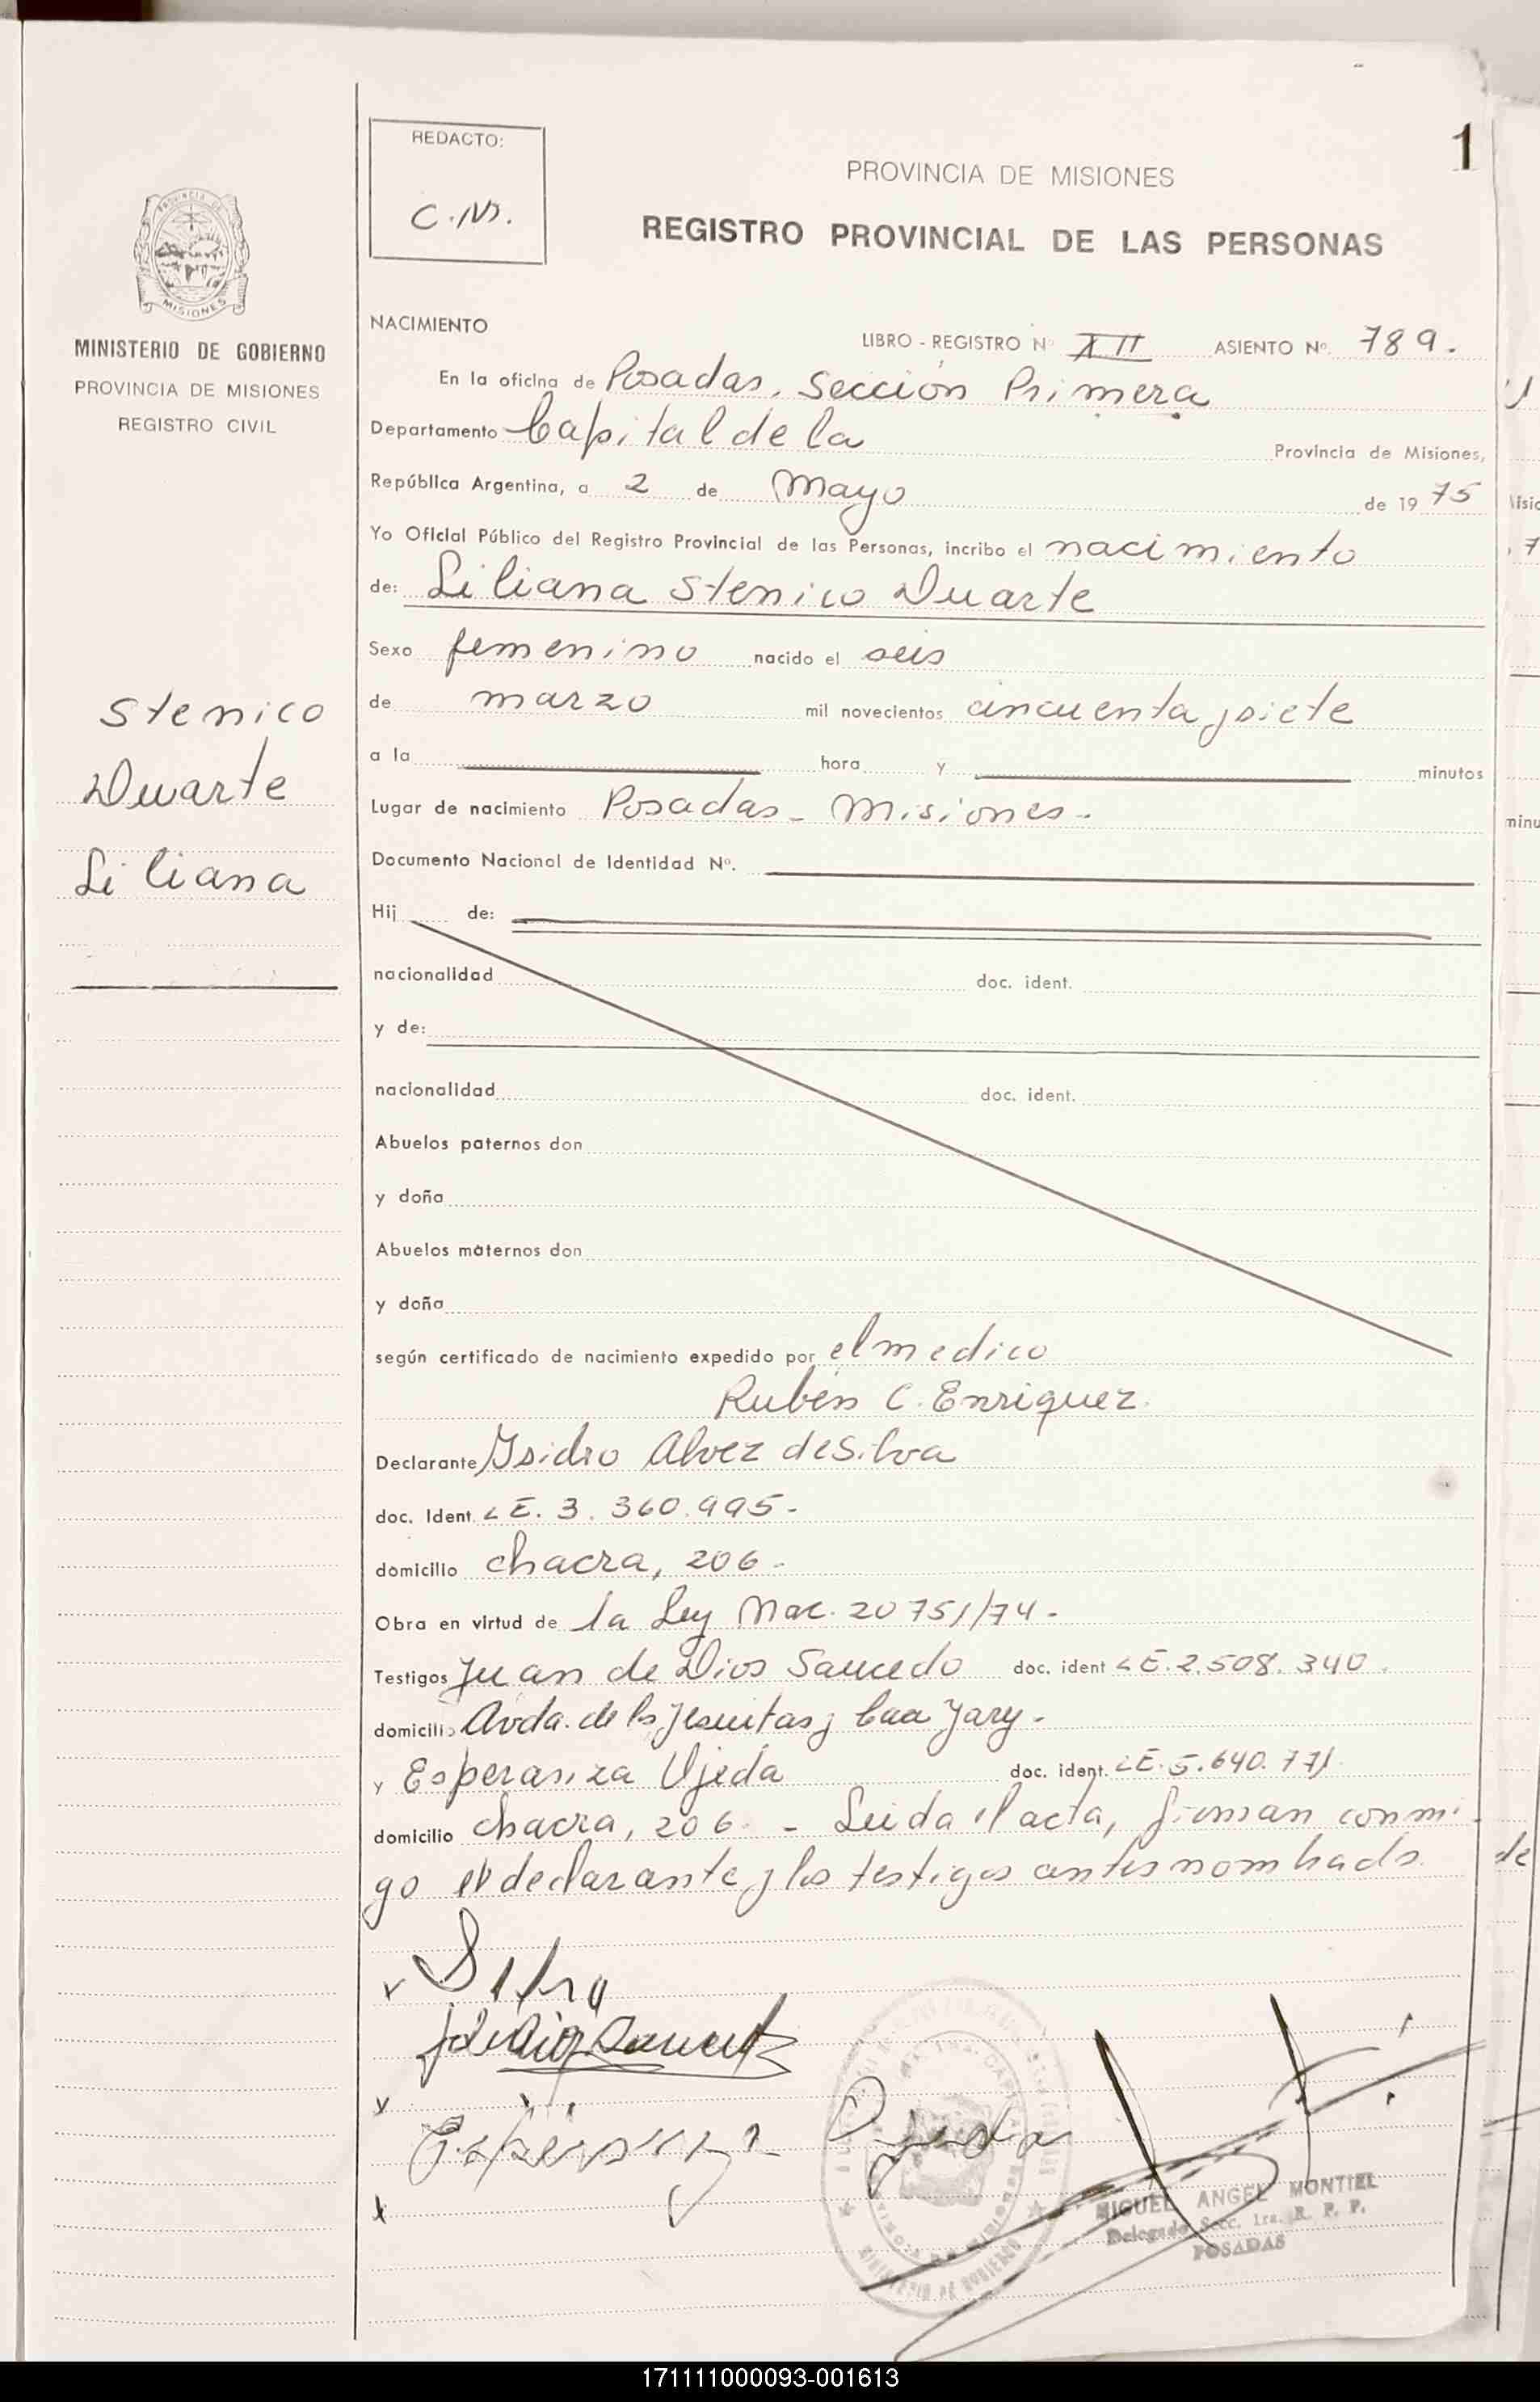 1
REDACTO:
C.N.
PROVINCIA DE MISIONES
REGISTRO PROVINCIAL DE LAS PERSONAS
MISIONES
MINISTERIO DE GOBIERNO
PROVINCIA DE MISIONES
REGISTRO CIVIL
Stenico
Duarte
Liliana
NACIMIENTO
LIBRO - REGISTRO Nº XII ASIENTO Nº 789.
En la oficina de Posadas, Sección Primera
Departamento Capital de la Provincia de Misiones,
República Argentina, a 2 de Mayo de 1975
Yo Oficial Público del Registro Provincial de las Personas, incribo el nacimiento
de: Liliana Stenico Duarte
Sexo femenino nacido el seis
de marzo mil novecientos cincuenta y siete
a la hora y minutos
Lugar de nacimiento Posadas - Misiones.
Documento Nacional de Identidad Nº.
Hij de:
nacionalidad doc. ident.
y de:
nacionalidad doc. ident.
Abuelos paternos don
y doña
Abuelos maternos don
y doña
según certificado de nacimiento expedido por el medico
Rubén C. Enriquez.
Declarante Ysidro Alvez de Silva
doc. Ident. LE. 3.360.995-
domicilio chacra, 206-
Obra en virtud de la Ley Nac. 20751/74-
Testigos Juan de Dios Saucedo doc. ident LE. 2.508.340.
domicilio Avda. de los Jesuitas y Caa Yary-
y Esperanza Ojeda doc. ident. LE. 5.640.771.
domicilio chacra, 206. - Leida el acta, firman conmi
go el declarante y los testigos antes nombrado.
Silva
Esperanza Ojeda
MINISTERIO DE GOBIERNO
MIGUEL ANGEL MONTIEL
Delegado Secc. 1ra. R. P. P.
POSADAS
171111000093-001613